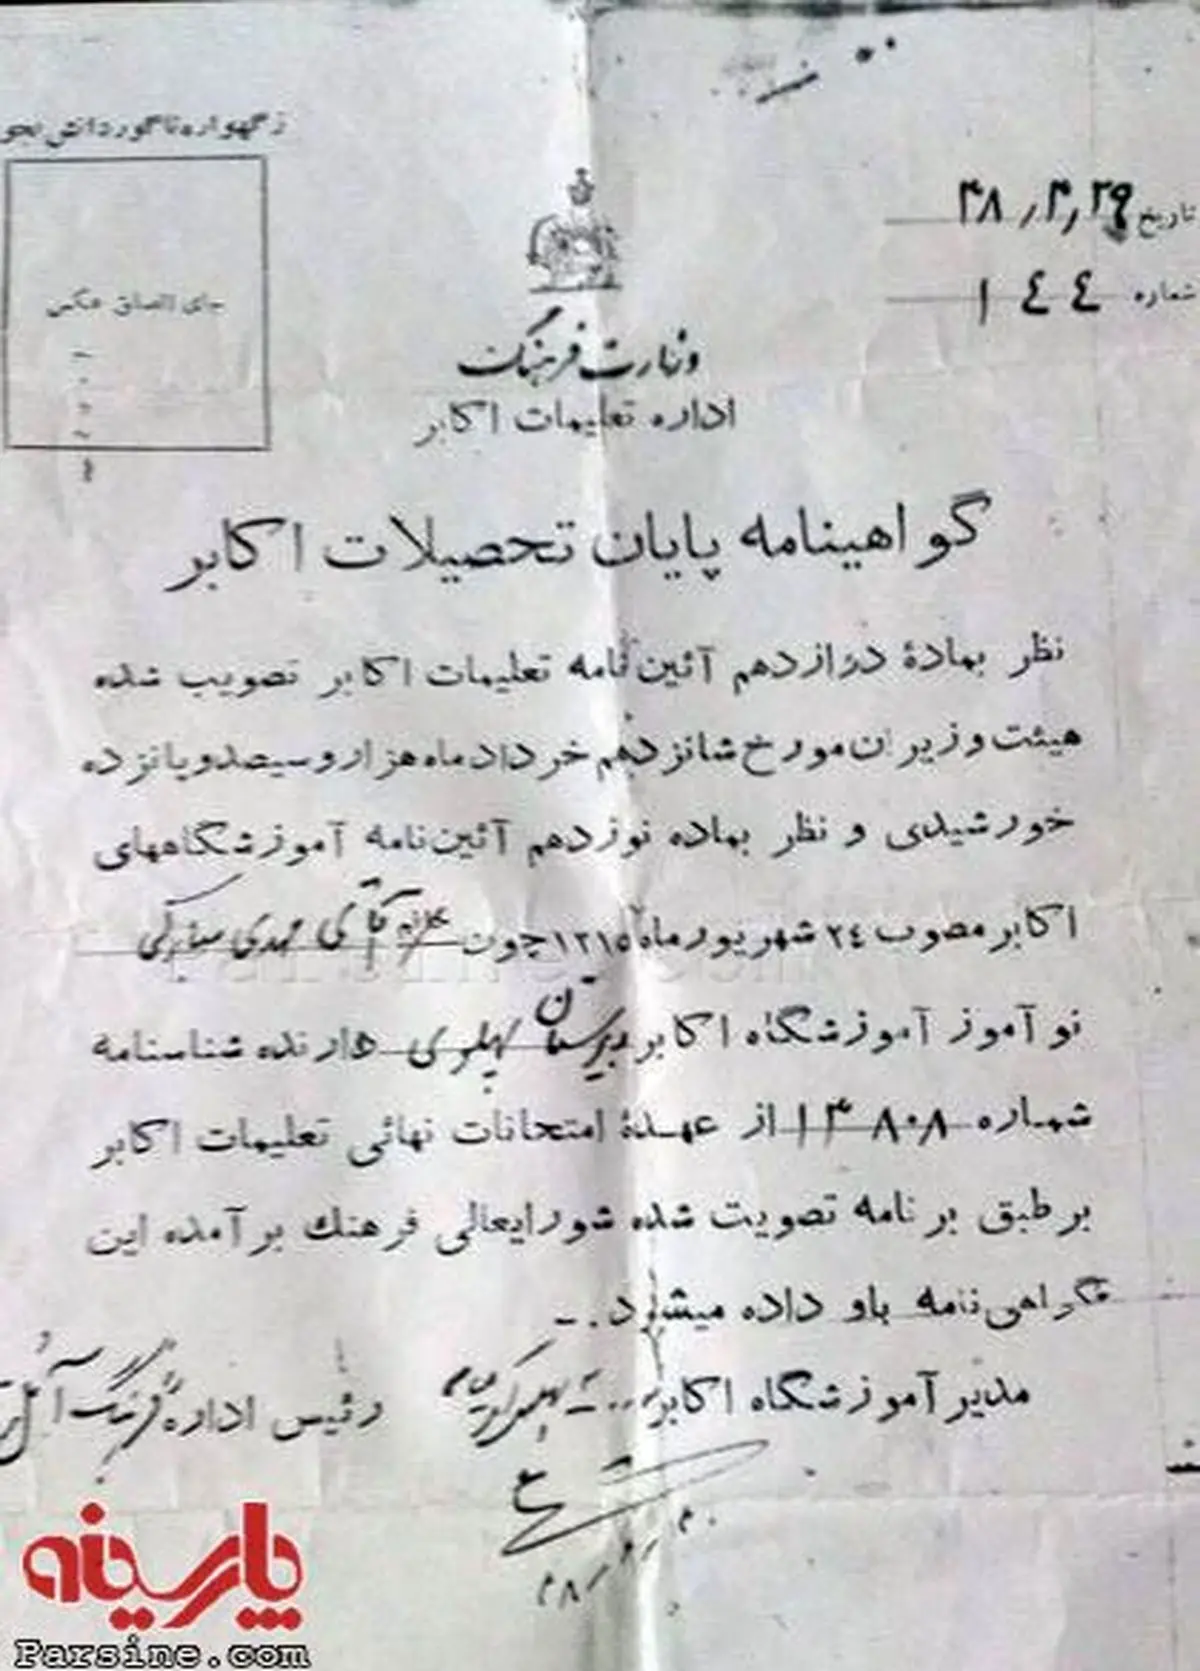 ز گهواره تا گور دانش بجو
تاریخ ۳۸٫۴٫۲۹
شماره ۱۴۴
جای الصاق عکس
وزارت فرهنگ
اداره تعلیمات اکابر
گواهینامه پایان تحصیلات اکابر
نظر بمادهٔ دوازدهم آئین نامه تعلیمات اکابر تصویب شده
هیئت وزیران مورخ شانزدهم خرداد ماه هزار و سیصد و پانزده
خورشیدی و نظر بماده نوزدهم آئین‌نامه آموزشگاههای
اکابر مصوب ۲۴ شهریور ماه ۱۳۱۵ چون آقای مهدی
نو آموز آموزشگاه اکابر دبیرستان پهلوی دارنده شناسنامه
شماره ۱۳۸۰۸ از عهدهٔ امتحانات نهائی تعلیمات اکابر
بر طبق برنامه تصویت شده شورایعالی فرهنك بر آمده این
گواهی‌نامه باو داده میشود.-
مدیر آموزشگاه اکابر
رئیس اداره فرهنگ
پارسینه
Parsine.com